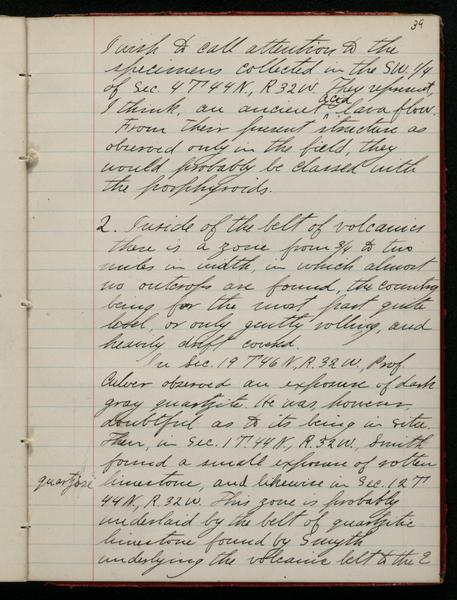 39
I wish to call attention to the
specimens collected in the SW. 1/4
of Sec. 4 T 44 N, R 32 W. They represent,
I think, an ancient acid lava flow.
From their present structure as
observed only in the field, they
would probably be classed with
the porphyroids.
2. Inside of the belt of volcanics
there is a zone from 3/4 to two
miles in width, in which almost
no outcrops are found, the country
being for the most part quite
level, or only gently rolling, and
heavily drift covered.
In Sec. 19 T 46 N, R. 32 W., Prof.
Culver observed an exposure of dark
gray quartzite. He was, however,
doubtful as to its being in situ.
Then, in Sec. 1 T. 44 N., R. 32 W., Smith
found a small exposure of rotten
quartzose limestone, and likewise in Sec. 12 T
44 N., R. 32 W. This zone is probably
underlaid by the belt of quartzitic
limestone found by Smyth
underlying the volcanic belt to the E